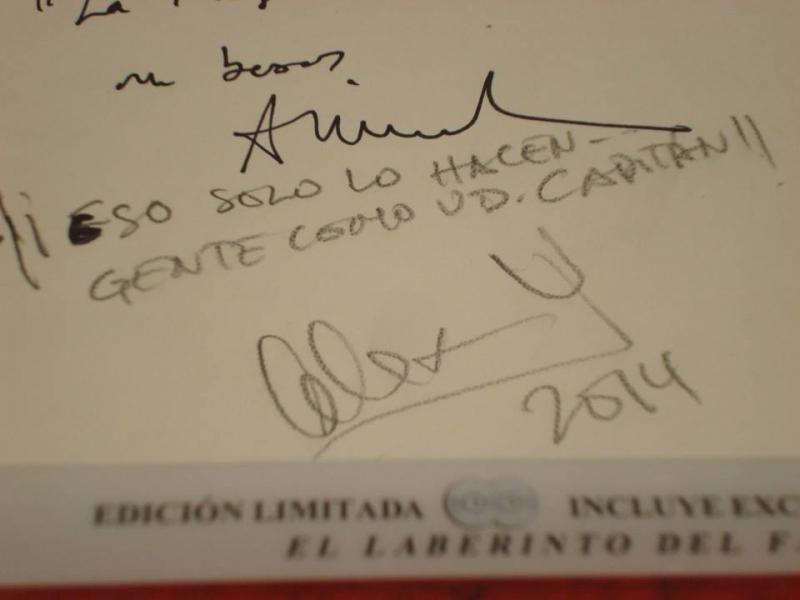 "La
un besos
¡¡ESO SOLO LO HACEN
GENTE COMO UD. CAPITÁN!!
Alex
2014
EDICIÓN LIMITADA INCLUYE EXC
EL LABERINTO DEL F